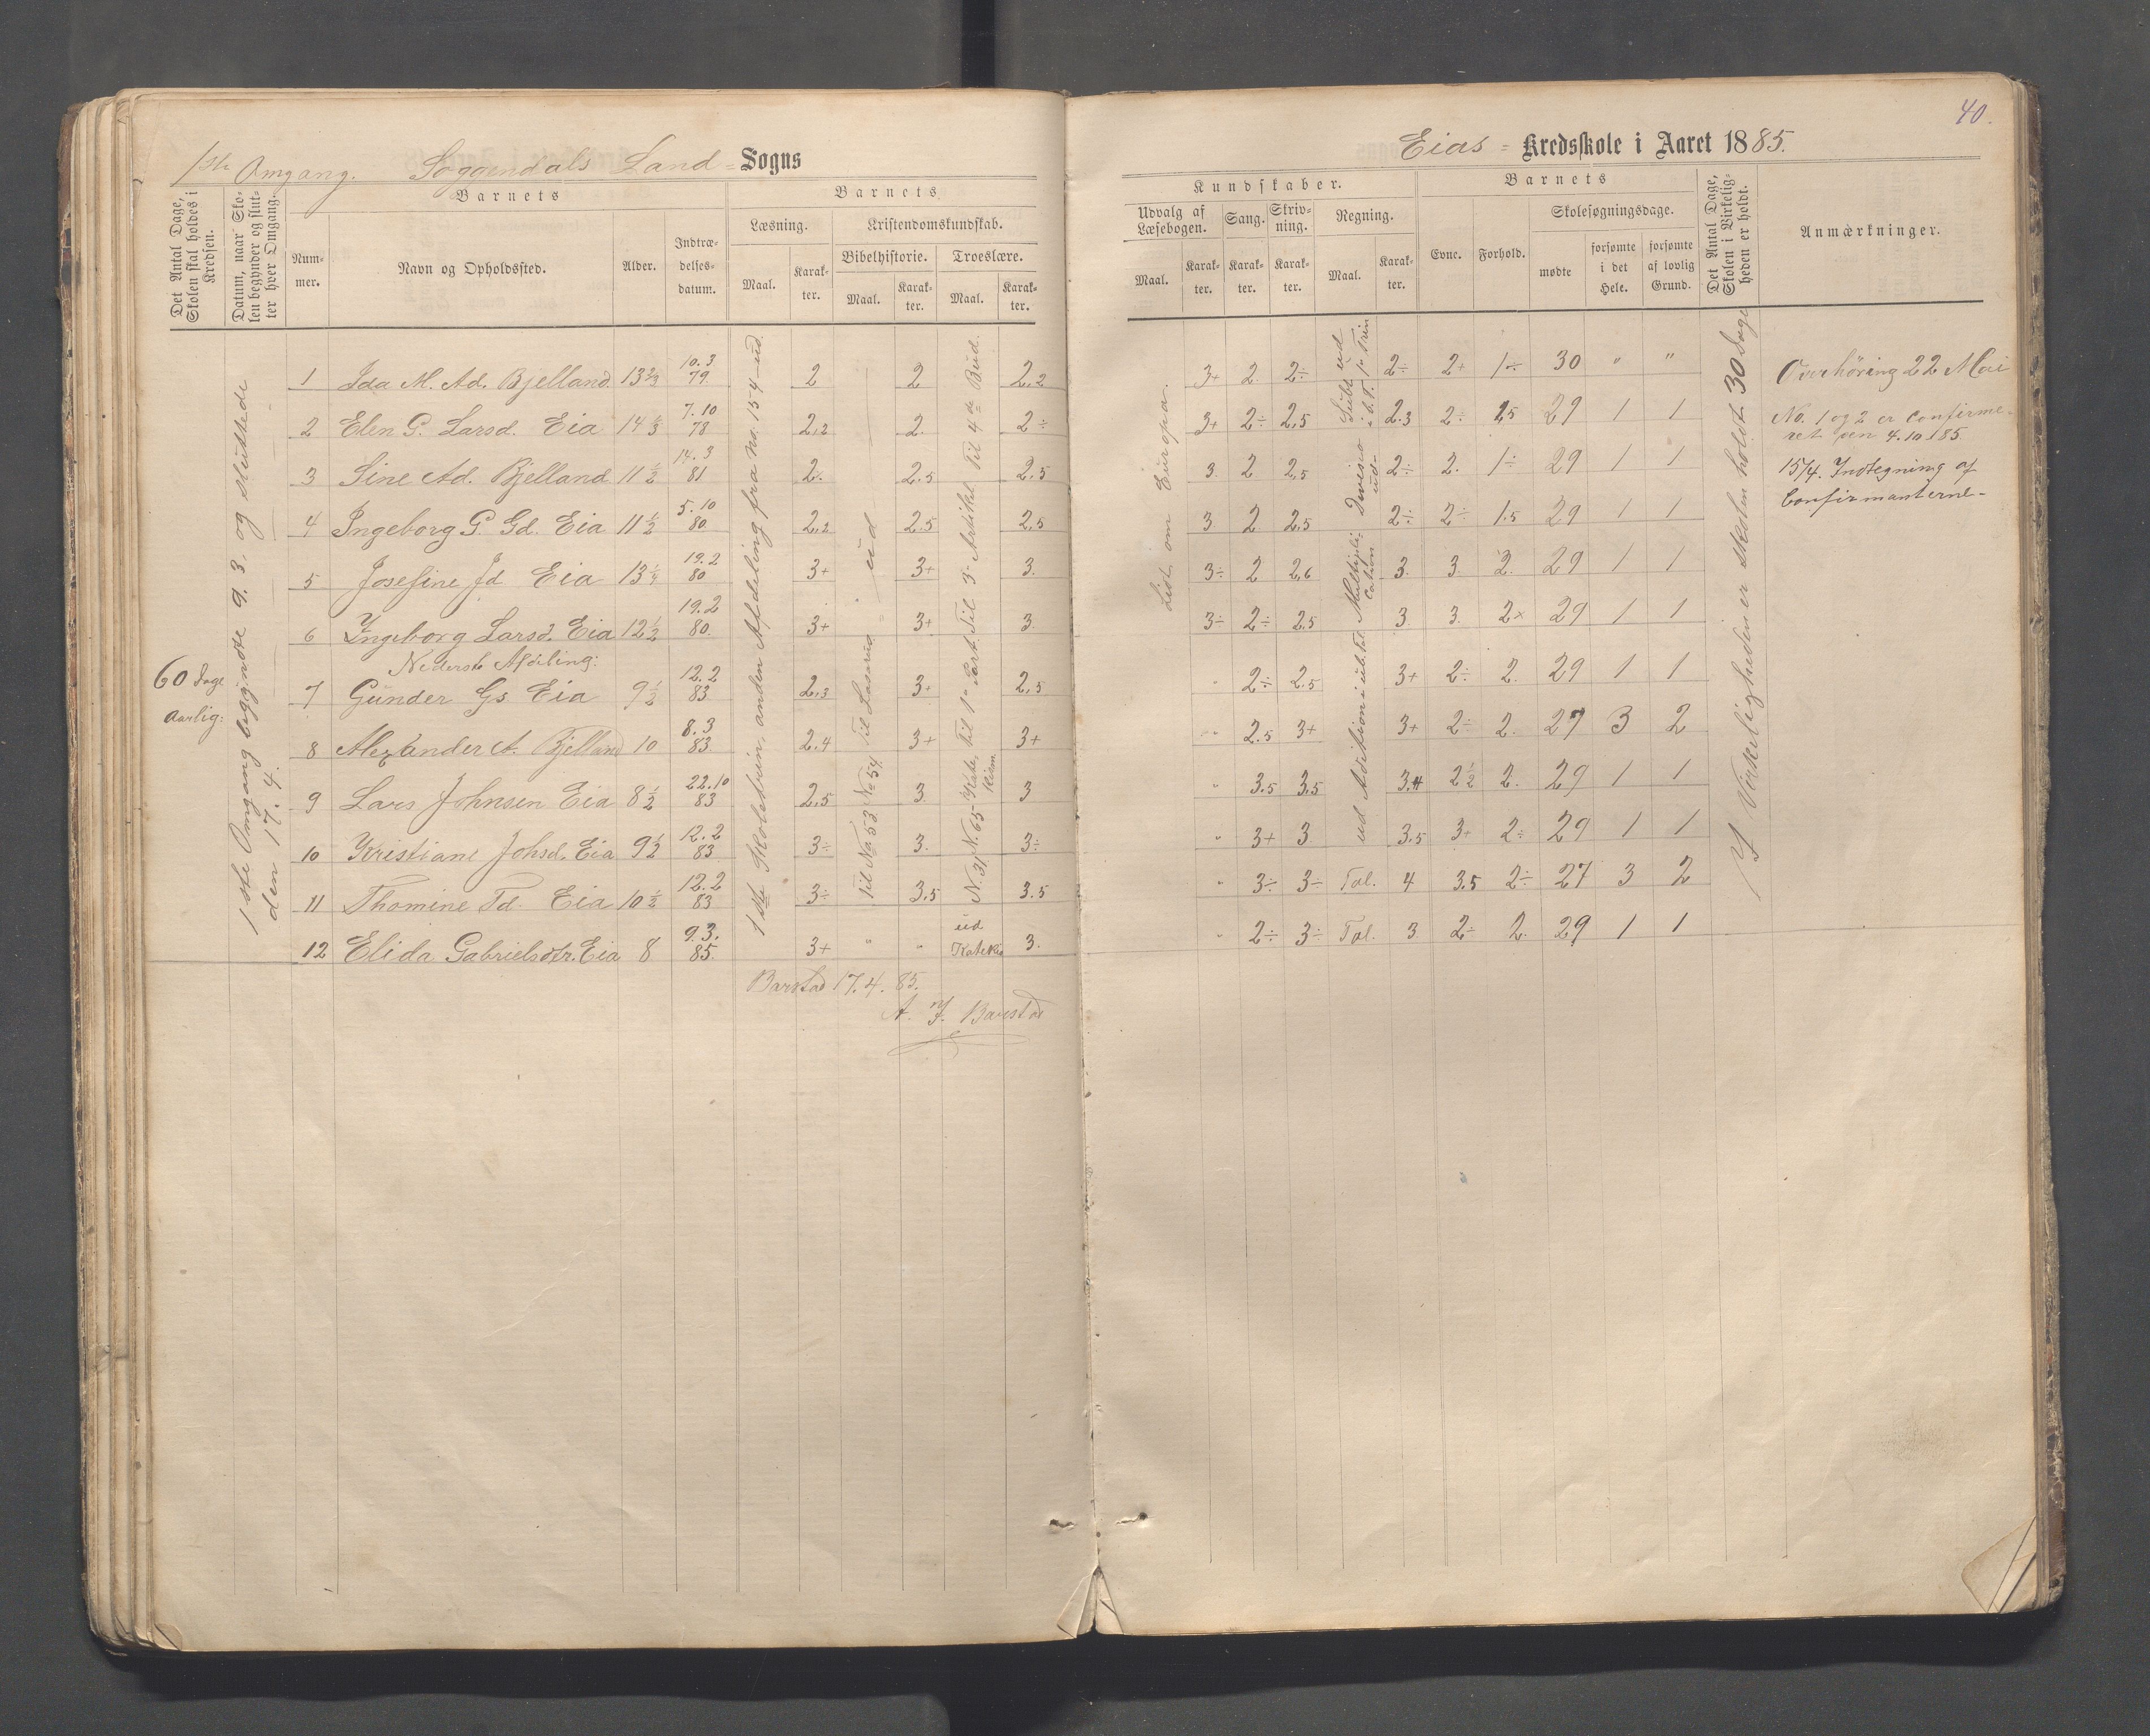 40.
1ste Omgang. Soggendals Land = Sogns
Eias = Kredsskole i Aaret 1885.
Det Antal Dage, Skolen skal holdes i Kredsen.
Datum, naar Skolen begynder og slutter hver Omgang.
Barnets
Nummer.
Navn og Opholdssted.
Alder.
Indtrædelsesdatum.
Barnets
Læsning.
Maal.
Karakter.
Kristendomskundskab.
Bibelhistorie.
Maal.
Karakter.
Troeslære.
Maal.
Karakter.
Kundskaber.
Udvalg af Læsebogen.
Maal.
Karakter.
Sang.
Karakter.
Skrivning.
Karakter.
Regning.
Maal.
Karakter.
Barnets
Evne.
Forhold.
Skolesøgningsdage.
mødte
forsømte i det Hele.
forsømte af lovlig Grund.
Det Antal Dage, Skolen i Virkeligheden er holdt.
Anmærkninger.
60 Dage
Aarlig:
1ste Omgang begyndte 9.3. og sluttede
den 17.4.
1ste Skoletrin, anden Afdeling fra no. 154 - ud.
Til No 53 No 54. Til Lasarus = ud
N. 31 N. 65 Kate- kism. Til 1ste Part. Til 3. Artikel Til 4de Bud.
Lidt om Europa.
Subt. ud
Division ud-
Multipli-
cation
ud Adition i ub. Tal.
I Virkeligheden er skolen holdt 30 Dage
1 Ida M. Ad. Bjelland 13 2/3 10.3 79. 2 2 2,2 3+ 2 2÷ 2÷ 2+ 1÷ 30 " "
2 Elen G. Larsd. Eia 14 7.10 78 2,2 2. 2÷ 3+ 2÷ 2,5 2.3 2÷ 1.5 29 1 1
3 Sine Ad. Bjelland 11 1/2 14.3 81 2. 2.5 2.5 3 2 2,5 2÷ 2. 1÷ 29 1 1
4 Ingeborg G. Gd. Eia 11 1/2 5.10 80. 2,2 2.5 2,5 3 2 2,5 2÷ 2÷ 1.5 29 1 1
5 Josefine Jd Eia 13 1/4 19.2 80 3+ 3+ 3. 3÷ 2 2,6 3. 3. 2. 29 1 1
6 Ingeborg Larsd. Eia 12 1/2 19.2 80. 3+ 3+ 3. 3÷ 2÷ 2.5 3. 3. 2× 29 1 1
Nederste Afdeling:
7 Gunder Gs Eia 9 1/2 12.2 83 2,3 3+ 2,5 " 2÷ 2.5 3+ 2÷ 2. 29 1 1
8 Alexander A. Bjelland 10 8.3 83 2.4 3+ 3+ " 2.5 3+ 3+ 2÷ 2. 27 3 2
9 Lars Johnsen Eia 8 1/2 22.10 83 2,5 3. 3 " 3.5 3.5 3.4 2 1/2 2. 29 1 1
10 Kristiane Johsd. Eia 9 1/2 12.2 83 3÷ 3. 3÷ " 3+ 3 3.5 3+ 2÷ 29 1 1
11 Thomine Td. Eia 10 1/2 12.2 83 3÷ 3.5 3.5 " 3÷ 3÷ Tal. 4 3.5 2÷ 27 3 2
12 Elida Gabrielsdtr. Eia 8 9.3. 85. 3+ " " ud Katekis 3. " 2÷ 3÷ Tal. 3 2÷ 2. 29 1 1
Overhöring 22 Mai
No. 1 og 2 er Confirme-
ret den 4.10.85.
15/4. Indtegning af
Confirmanterne-
Barstad 17.4.85.
A. J. Barstad